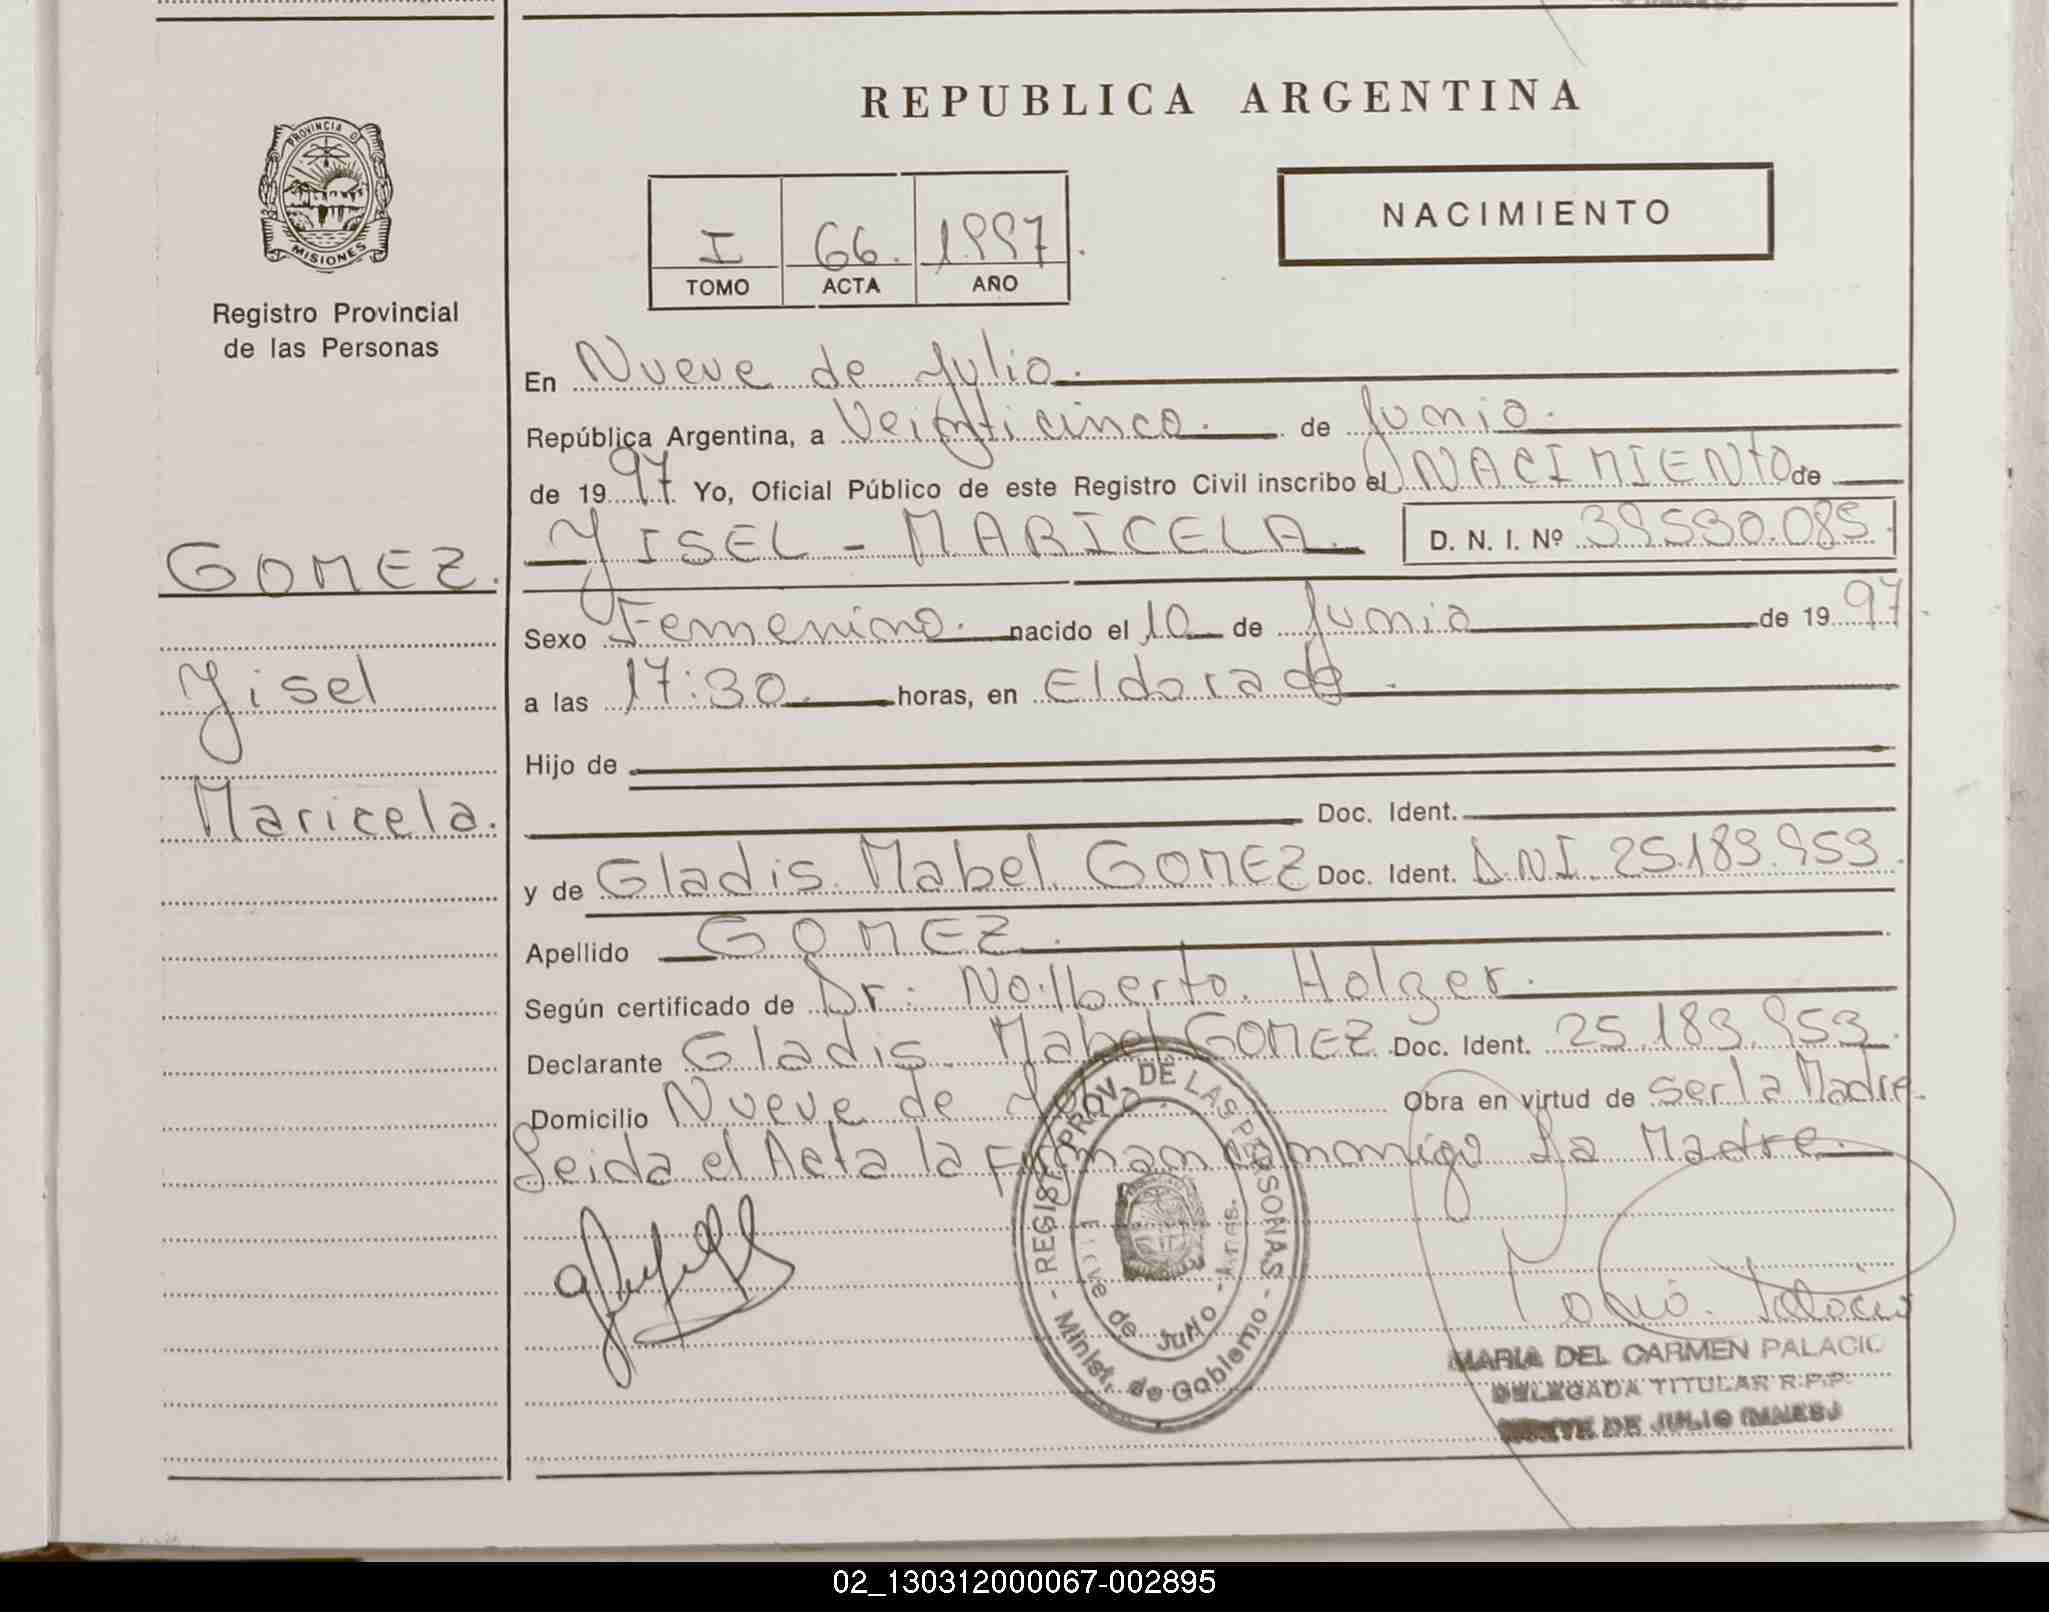 REPUBLICA ARGENTINA
PROVINCIA D
MISIONES
Registro Provincial
de las Personas
I 66. 1997.
TOMO ACTA AÑO
NACIMIENTO
En Nueve de Julio.
República Argentina, a Veinticinco. de Junio.
de 1997. Yo, Oficial Público de este Registro Civil inscribo el NACIMIENTO de
YISEL - MARICELA. D. N. I. Nº 39530.085.
GOMEZ.
Sexo Femenino. nacido el 10 de Junio de 1997.
Yisel
a las 17:30. horas, en Eldorado.
Hijo de
Maricela.
Doc. Ident.
y de Gladis Mabel GOMEZ Doc. Ident. D.N.I. 25.183.953.
Apellido GOMEZ.
Según certificado de Dr. Nolberto. Holzer.
Declarante Gladis Mabel GOMEZ Doc. Ident. 25.183.953.
Domicilio Nueve de Julio. Obra en virtud de ser la Madre.
Leida el Acta la Firman conmigo La Madre.
REGIST. PROV. DE LAS PERSONAS - Minist. de Gobierno -
MARIA DEL CARMEN PALACIO
DELEGADA TITULAR R.P.P.
DE JULIO
02_130312000067-002895